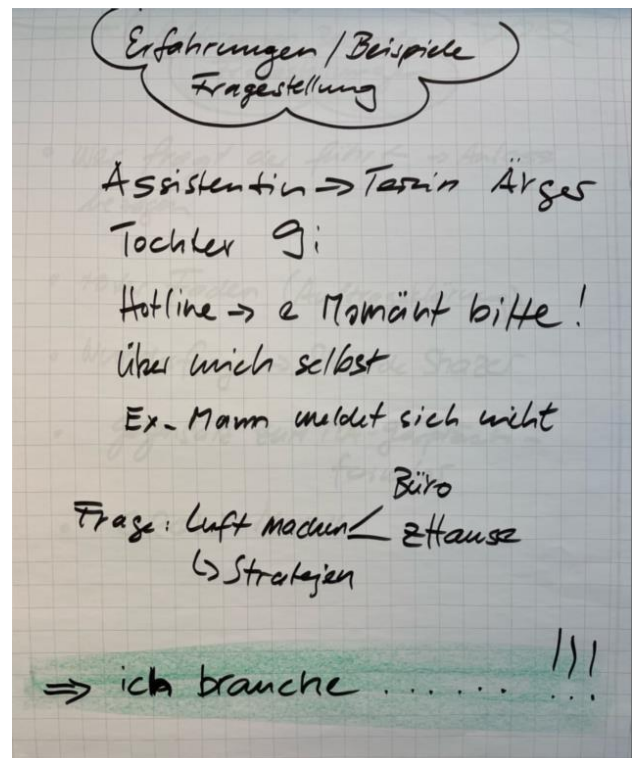 Erfahrungen / Beispiele
Fragestellung
Assistentin => Ärger
Tochter
Hotline -> e Momänt bitte!
Über mich selbst
Ex-Mann meldet sich nicht
Büro
Frage: Luft machen < zHause
↳ Stratejen
=> ich brauche ....... !!!